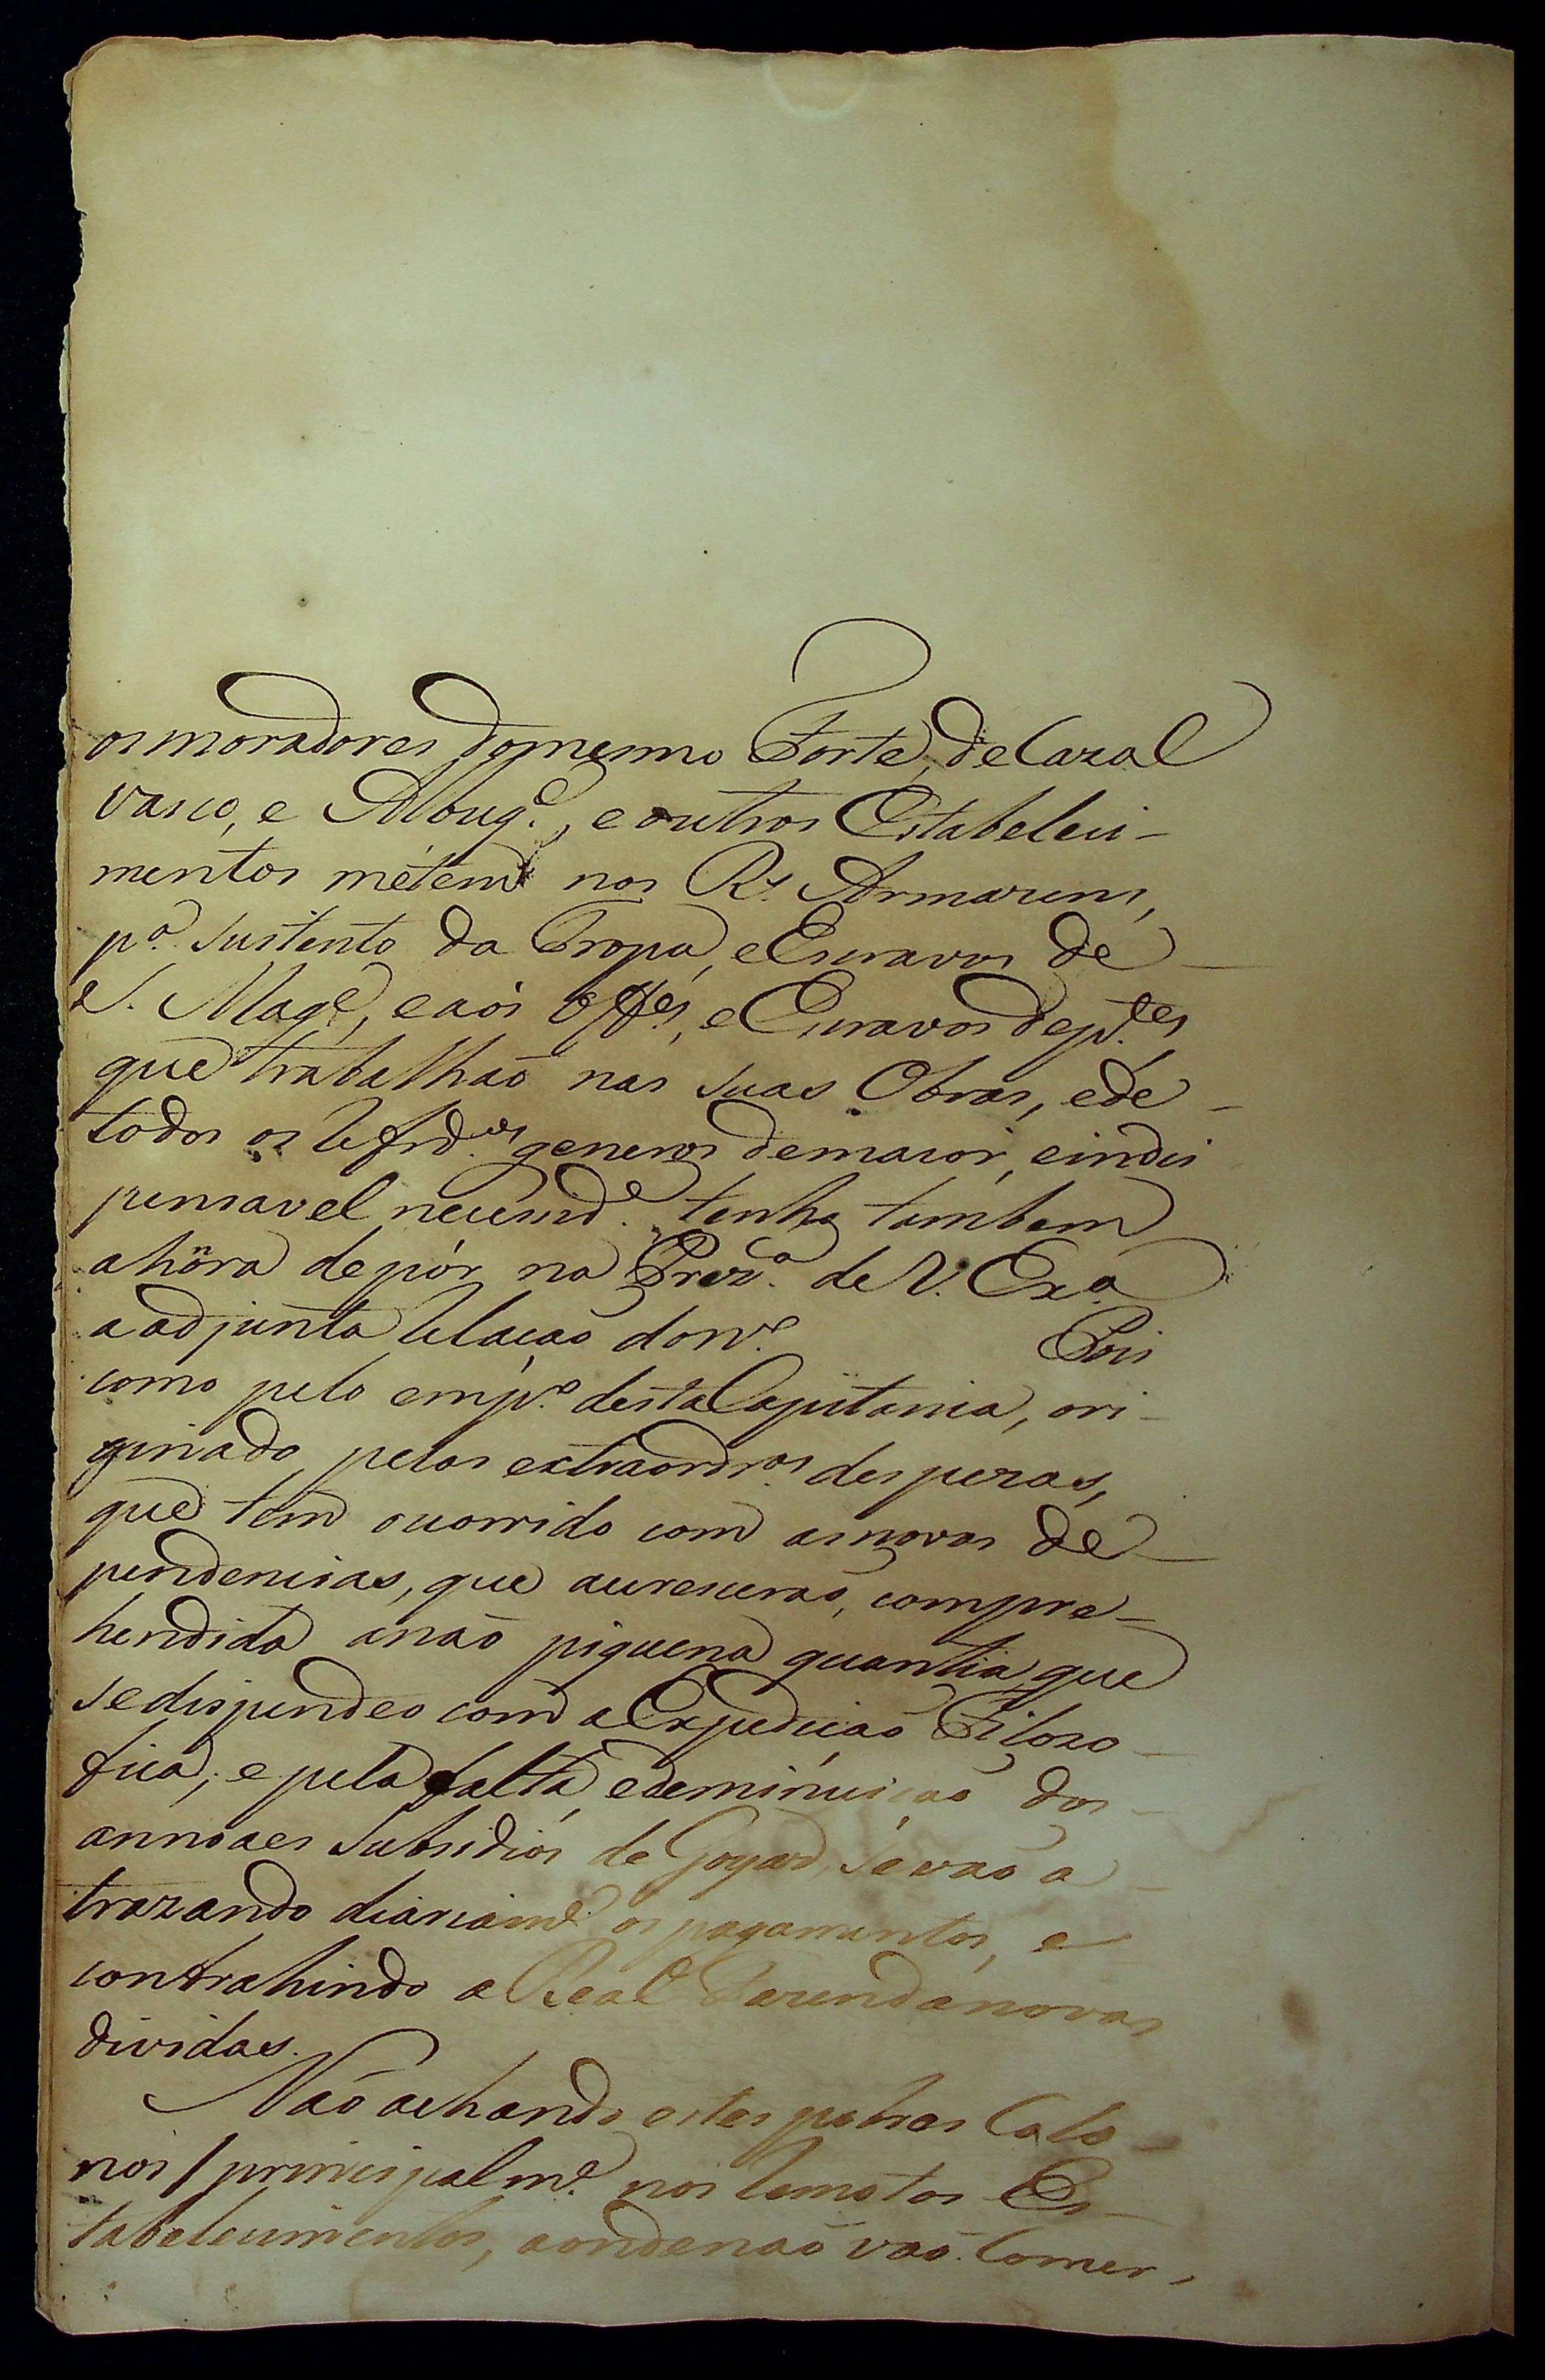 os moradores do mesmo Forte, de Cazal
vasco, e Albuq.e, e outros Estabeleci-
mentos métem nos R.s Armazens,
p.a sustento da Tropa, e Escravos de
S. Mag.e, e aos Off.es, e Escravos de p.tes
que trabalhaõ nas suas Obras, e de
todos os refrd.os generos de maior, e indis
pensavel necessid.e tenho tambem
a honra de pôr na Prez.a de V. Ex.a
a adjunta relaçaõ do n.o Pois
como pelo emp.o desta Capitania, ori-
ginado pelas extraordr.as despezas,
que tem ocorrido com as novas de-
pendencias, que acrescerão, compre-
hendida a naõ piquena quantia que
se dispendeo com a Expediçaõ Filozo-
fica, e pela falta, e deminuiçaõ dos
annoaes Subsidios de Goyaz, se vaõ a-
trazando diariam.e os pagamentos, e
contrahindo a Real Fazenda novas
dividas.
Naõ achando estes pobres Colo-
nos / principalm.e nos remotos Es-
tabelecimentos, aonde naõ vaõ Comer-